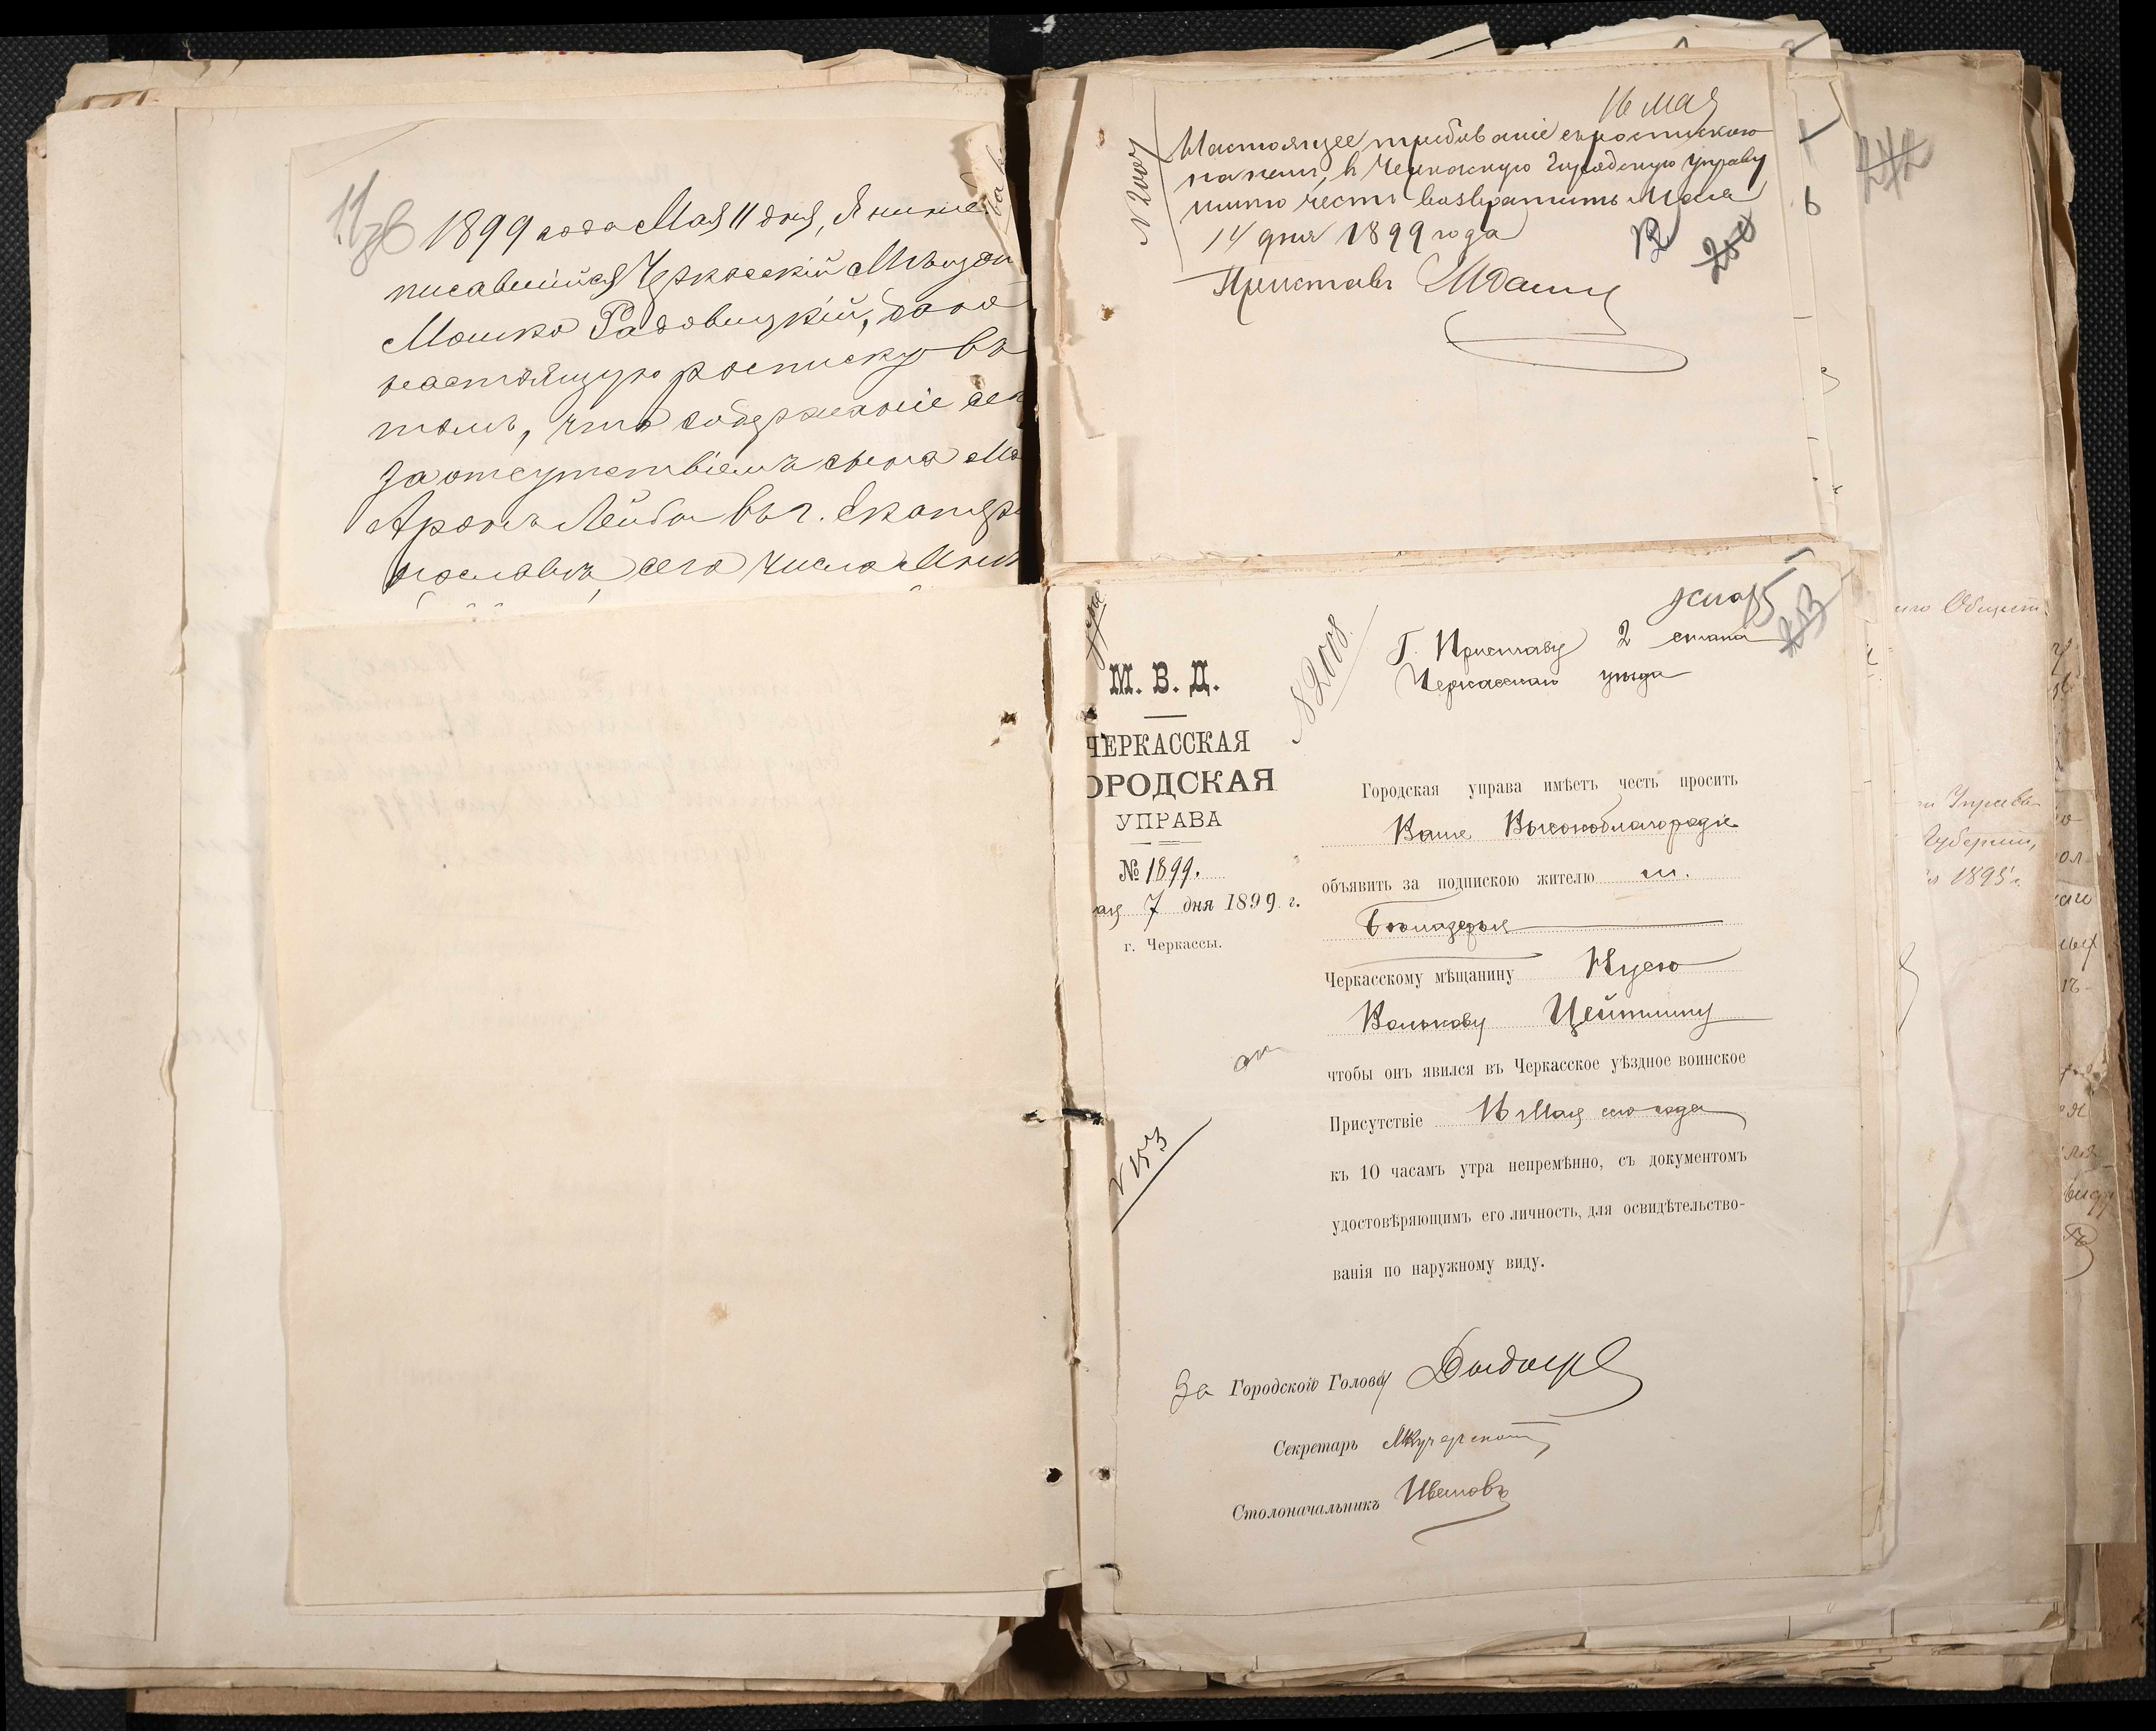 1899 года Мая 11 дня, Я ниже
писавшийся Черкасскій Мѣщан
Мошко Радовицкій, дало
настоящую росписку въ
томъ, что содержаніе
За отсутствіемъ сына Мо
Аронъ Лейба въ г. Екатер
нославѣ, сего числа мнѣ
16 мая
№ 2007
Настоящее требованіе съ роспискою
на немъ, въ Черкасскую Городскую Управу
имѣю честь возвратить Мая
14 дня 1899 года
Приставъ
М. В. Д.
ЧЕРКАССКАЯ
ОРОДСКАЯ
УПРАВА
№ 1899.
ая 7 дня 1899 г.
г. Черкассы.
№ 2008
Г. Приставу 2 стана
Черкасскаго уѣзда
Городская управа имѣетъ честь просить
Ваше Высокоблагородіе
объявить за подпискою жителю м.
Бѣлозерья
Черкасскому мѣщанину Нусю
Волькову Цейтлину
чтобы онъ явился въ Черкасское уѣздное воинское
Присутствіе 16 Мая сего года
къ 10 часамъ утра непремѣнно, съ документомъ
удостовѣряющимъ его личность, для освидѣтельство-
ванія по наружному виду.
№ 153
За Городского Голову
Секретарь
Столоначальникъ Ивановъ
Губерніи,
1895 г.